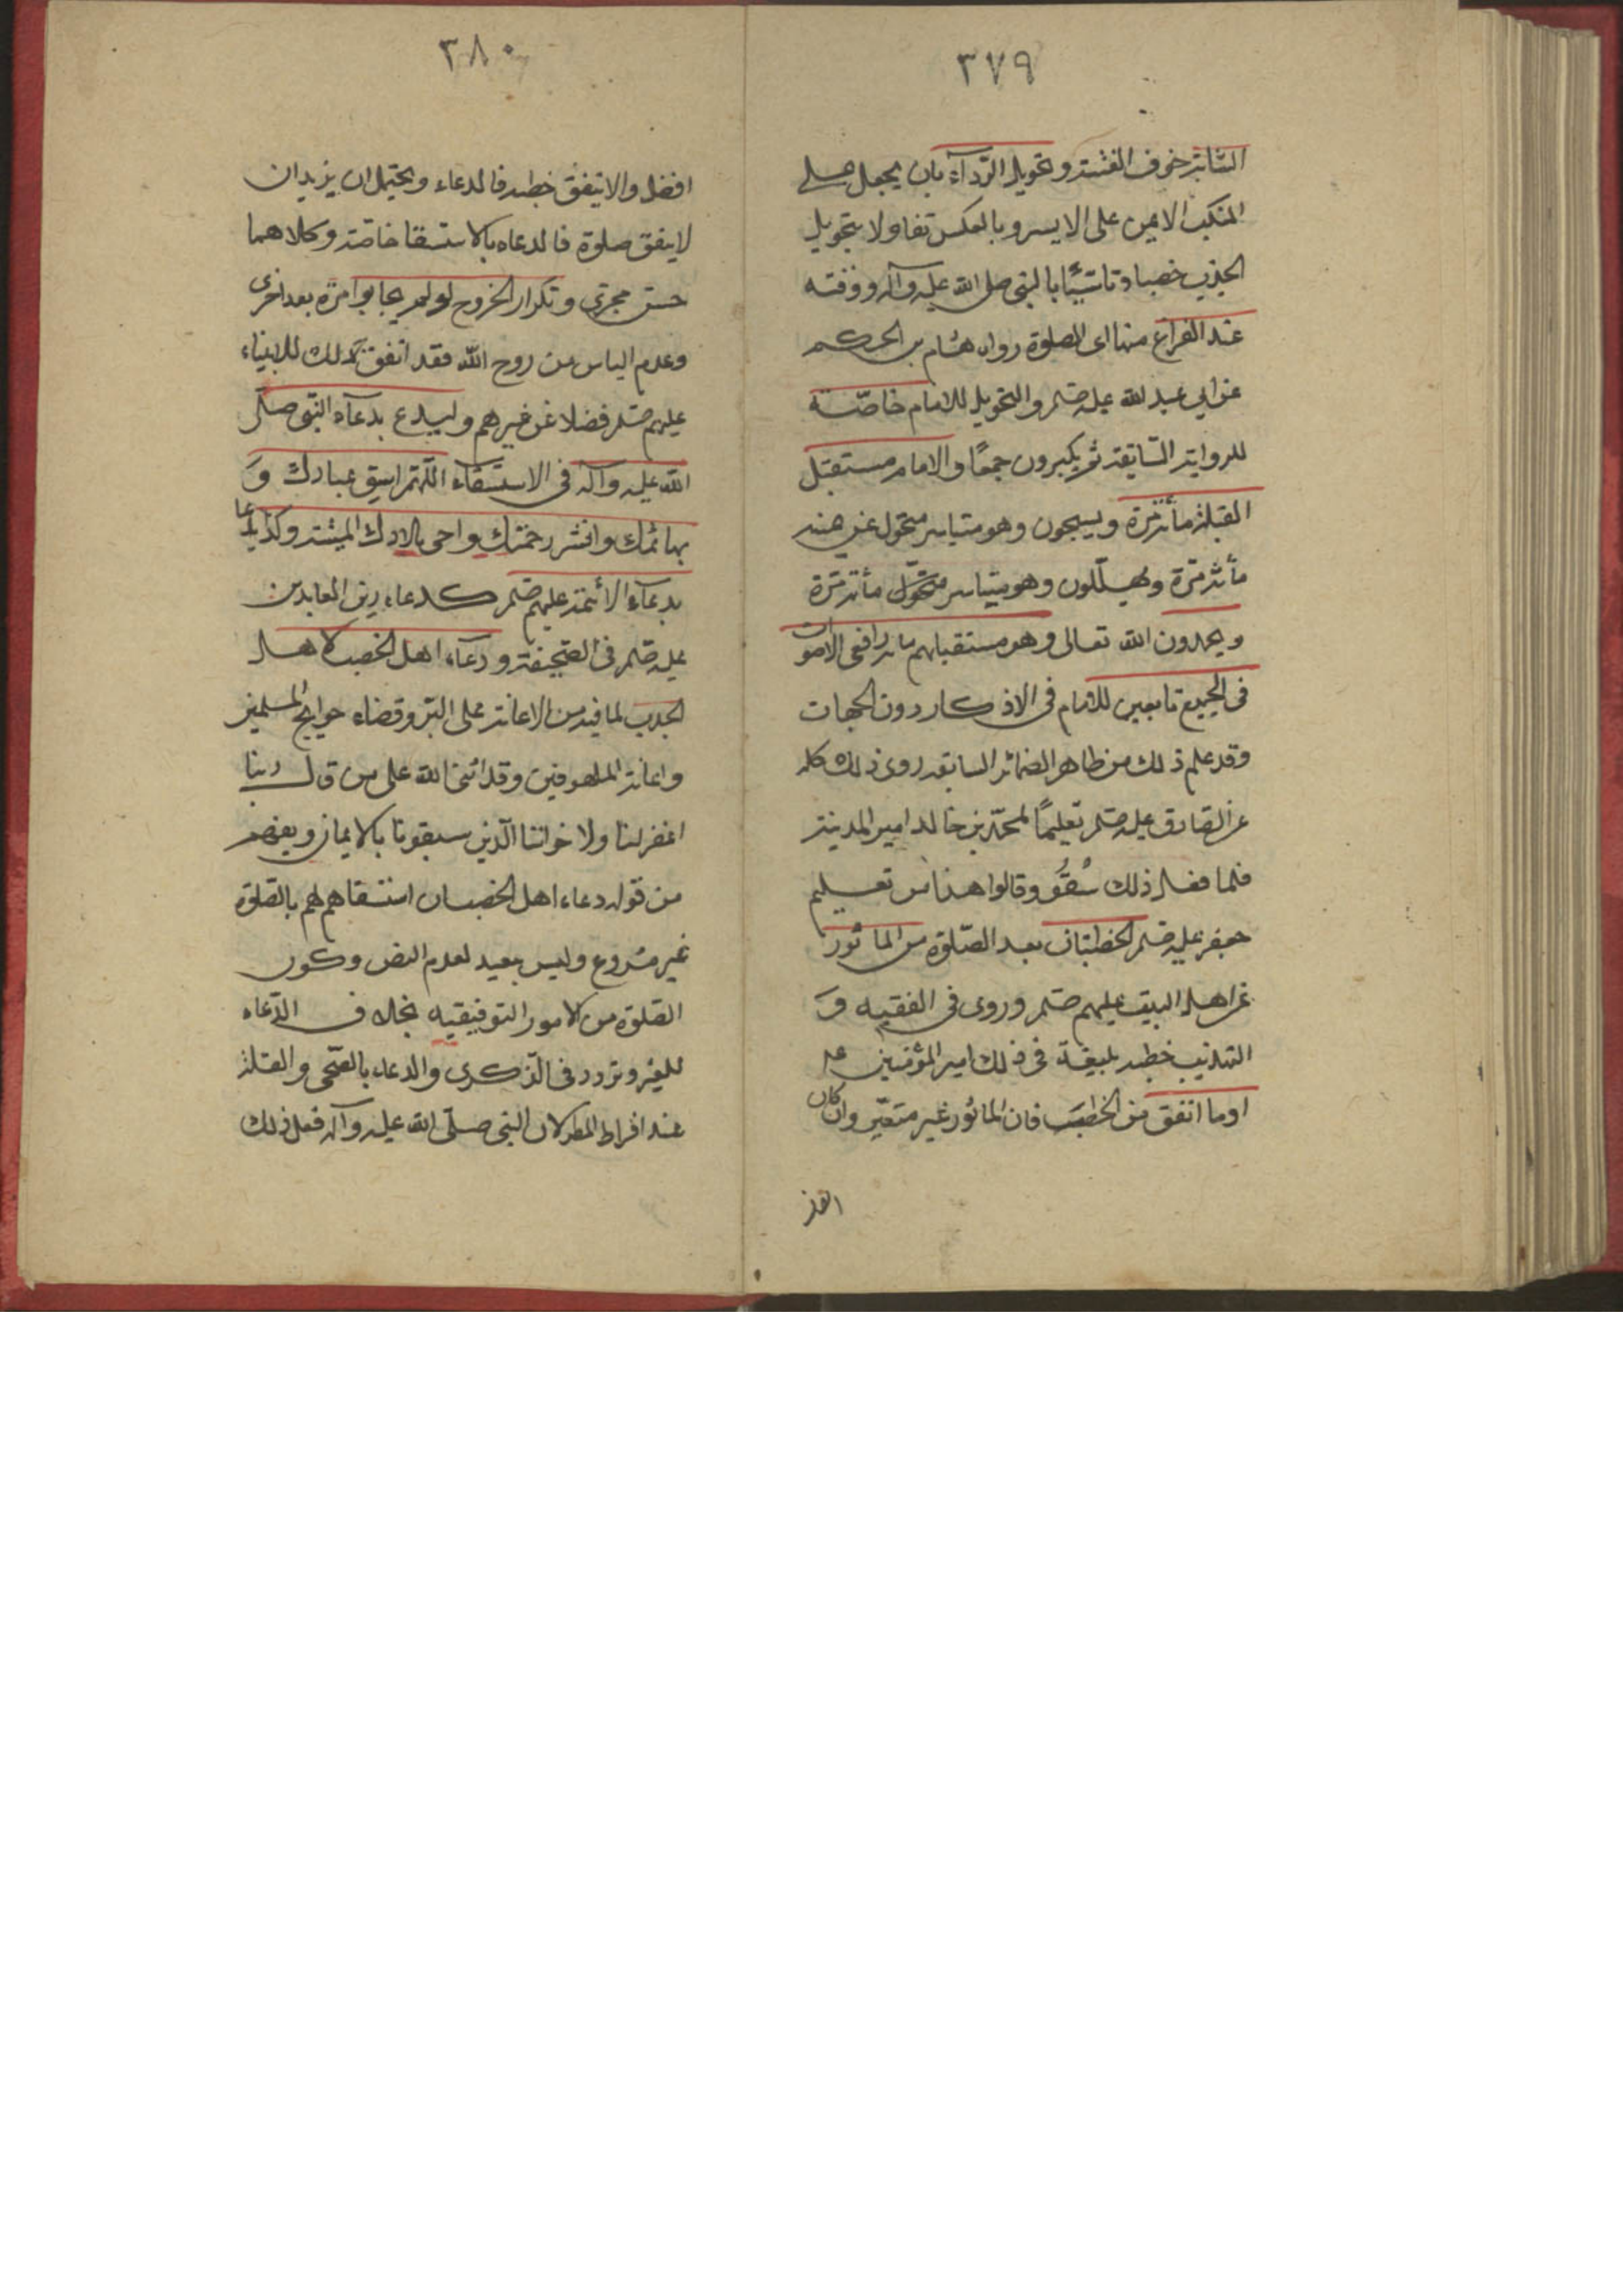 ٣٧٩
الشابة خوف الفتنة وتحويل الرداء بان يجعل على
المنكب الايمن على الايسر وبالعكس تفاولا بتحويل
الجذب خصبا وتاسّيًا بالنبى صلى الله عليه وآله ووقته
عند الفراغ منها اى الصلوة رواه هشام بن الحكم
عن ابي عبد الله عليه صلم والتحويل للامام خاصّة
للرواية السّابقة ثم يكبرون جمعًا والامام مستقبل
القبلة مأة مرّة ويسبحون وهو متياسر متحول عن هذه
مأة مرّة ويهلّلون وهو متياسر متحوّل مأة مرّة
ويحمدون الله تعالى وهو مستقبلهم مأة رافعى الاصوات
فى الجميع تابعين للامام فى الاذكار دون الجهات
وقد علم ذلك من ظاهر الضمائر السابقه روى ذلك كله
عن الصادق عليه صلم تعليمًا لمحمّد بن خالد امير المدينة
فلما فعل ذلك سُقُو وقالوا هذا من تعليم
جعفر عليه صلم الخطبتان بعد الصّلوة من المأثور
عن اهل البيت عليهم صلم وروى فى الفقيه وَ
التهذيب خطبه بليغة فى ذلك امير المؤمنين عه
اوما اتفق من الخطب فان المأثور غير متعيّن وان كان
افضل
٣٨٠
افضل والا يتفق خطبه فالدعاء ويحتمل ان يريد ان
لا يتفق صلوة فالدعاء بالاستسقا خاصة وكلاهما
حسن مجزي وتكرار الخروج لو لم يجابوا مرّة بعد اخرى
وعدم الياس من روح الله فقد اتفق ذلك للانبياء
عليهم صلم فضلا عن غيرهم وليدع بدعاء النّبى صلّى
الله عليه وآله فى الاستسقاء اللّهمّ اسق عبادك وَ
بهائمك وانشر رحمتك واحى بلادك الميتة وكذا يدعا
بدعاء الأئمة عليهم صلم كدعاء زين العابدين
عليه صلم فى الصّحيفة ودعاء اهل الخصب لاهل
الجدب لما فيه من الاعانة على البرّ وقضاء حوايج المسلمين
واعانة الملهوفين وقد اثنى الله على من قال ربنا
اغفر لنا ولاخواننا الّذين سبقونا بالايمان ويفهم
من قوله دعاء اهل الخصب ان استسقاهم لهم بالصّلوة
غير مشروع وليس ببعيد لعدم النص وكون
الصّلوة من الامور التوقيفيه بخلاف الدّعاء
للغير وتردد فى الذّكرى والدعاء بالصّحى والقلة
عند افراط المطر لان النبى صلّى الله عليه وآله فعل ذلك